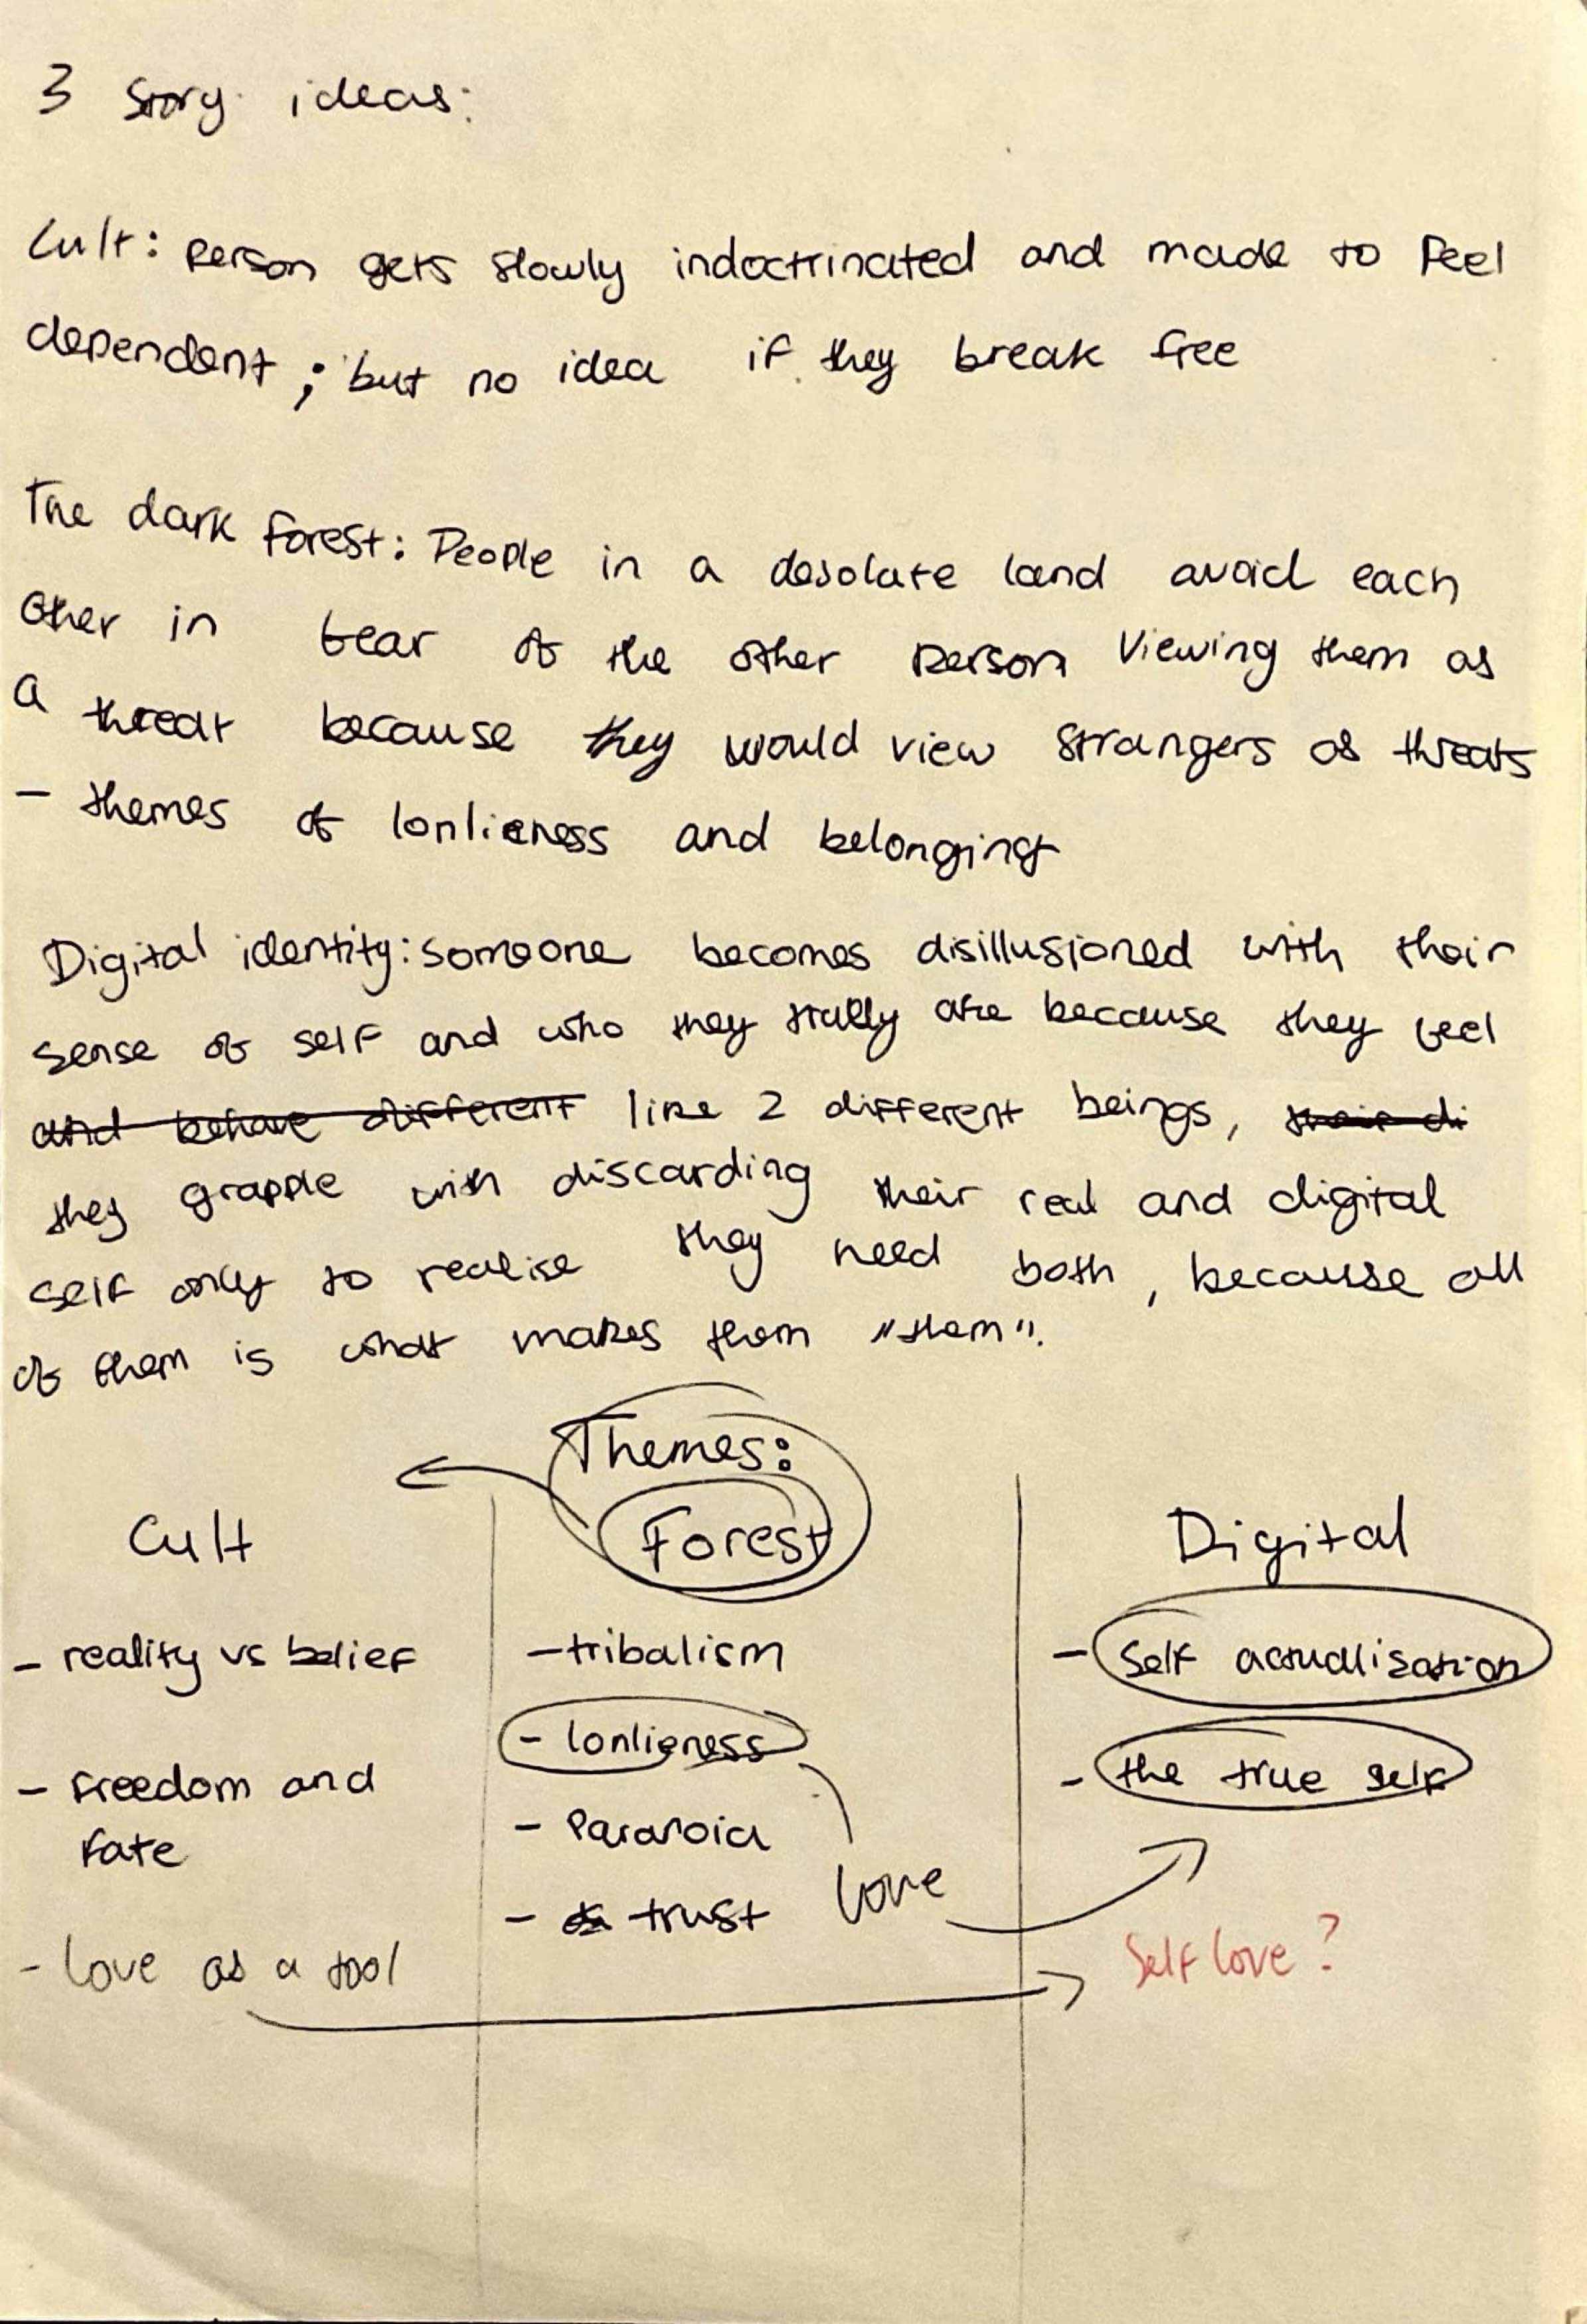 3 Story ideas:
Cult: Person gets slowly indoctrinated and made to feel
dependent; but no idea if they break free
The dark forest: People in a desolate land avoid each
other in fear of the other person viewing them as
a threat because they would view strangers as threats
- themes of lonlieness and belonging
Digital identity: someone becomes disillusioned with their
sense of self and who they trully are because they feel
and behave different like 2 different beings, their di
they grapple with discarding their real and digital
self only to realise they need both, because all
of them is what makes them "them".
Themes:
Cult
- reality vs belief
- freedom and
fate
- love as a tool
Forest
- tribalism
- lonlieness
- Paranoia
- trust
love
Digital
- Self actualisation
- the true self
Self love?